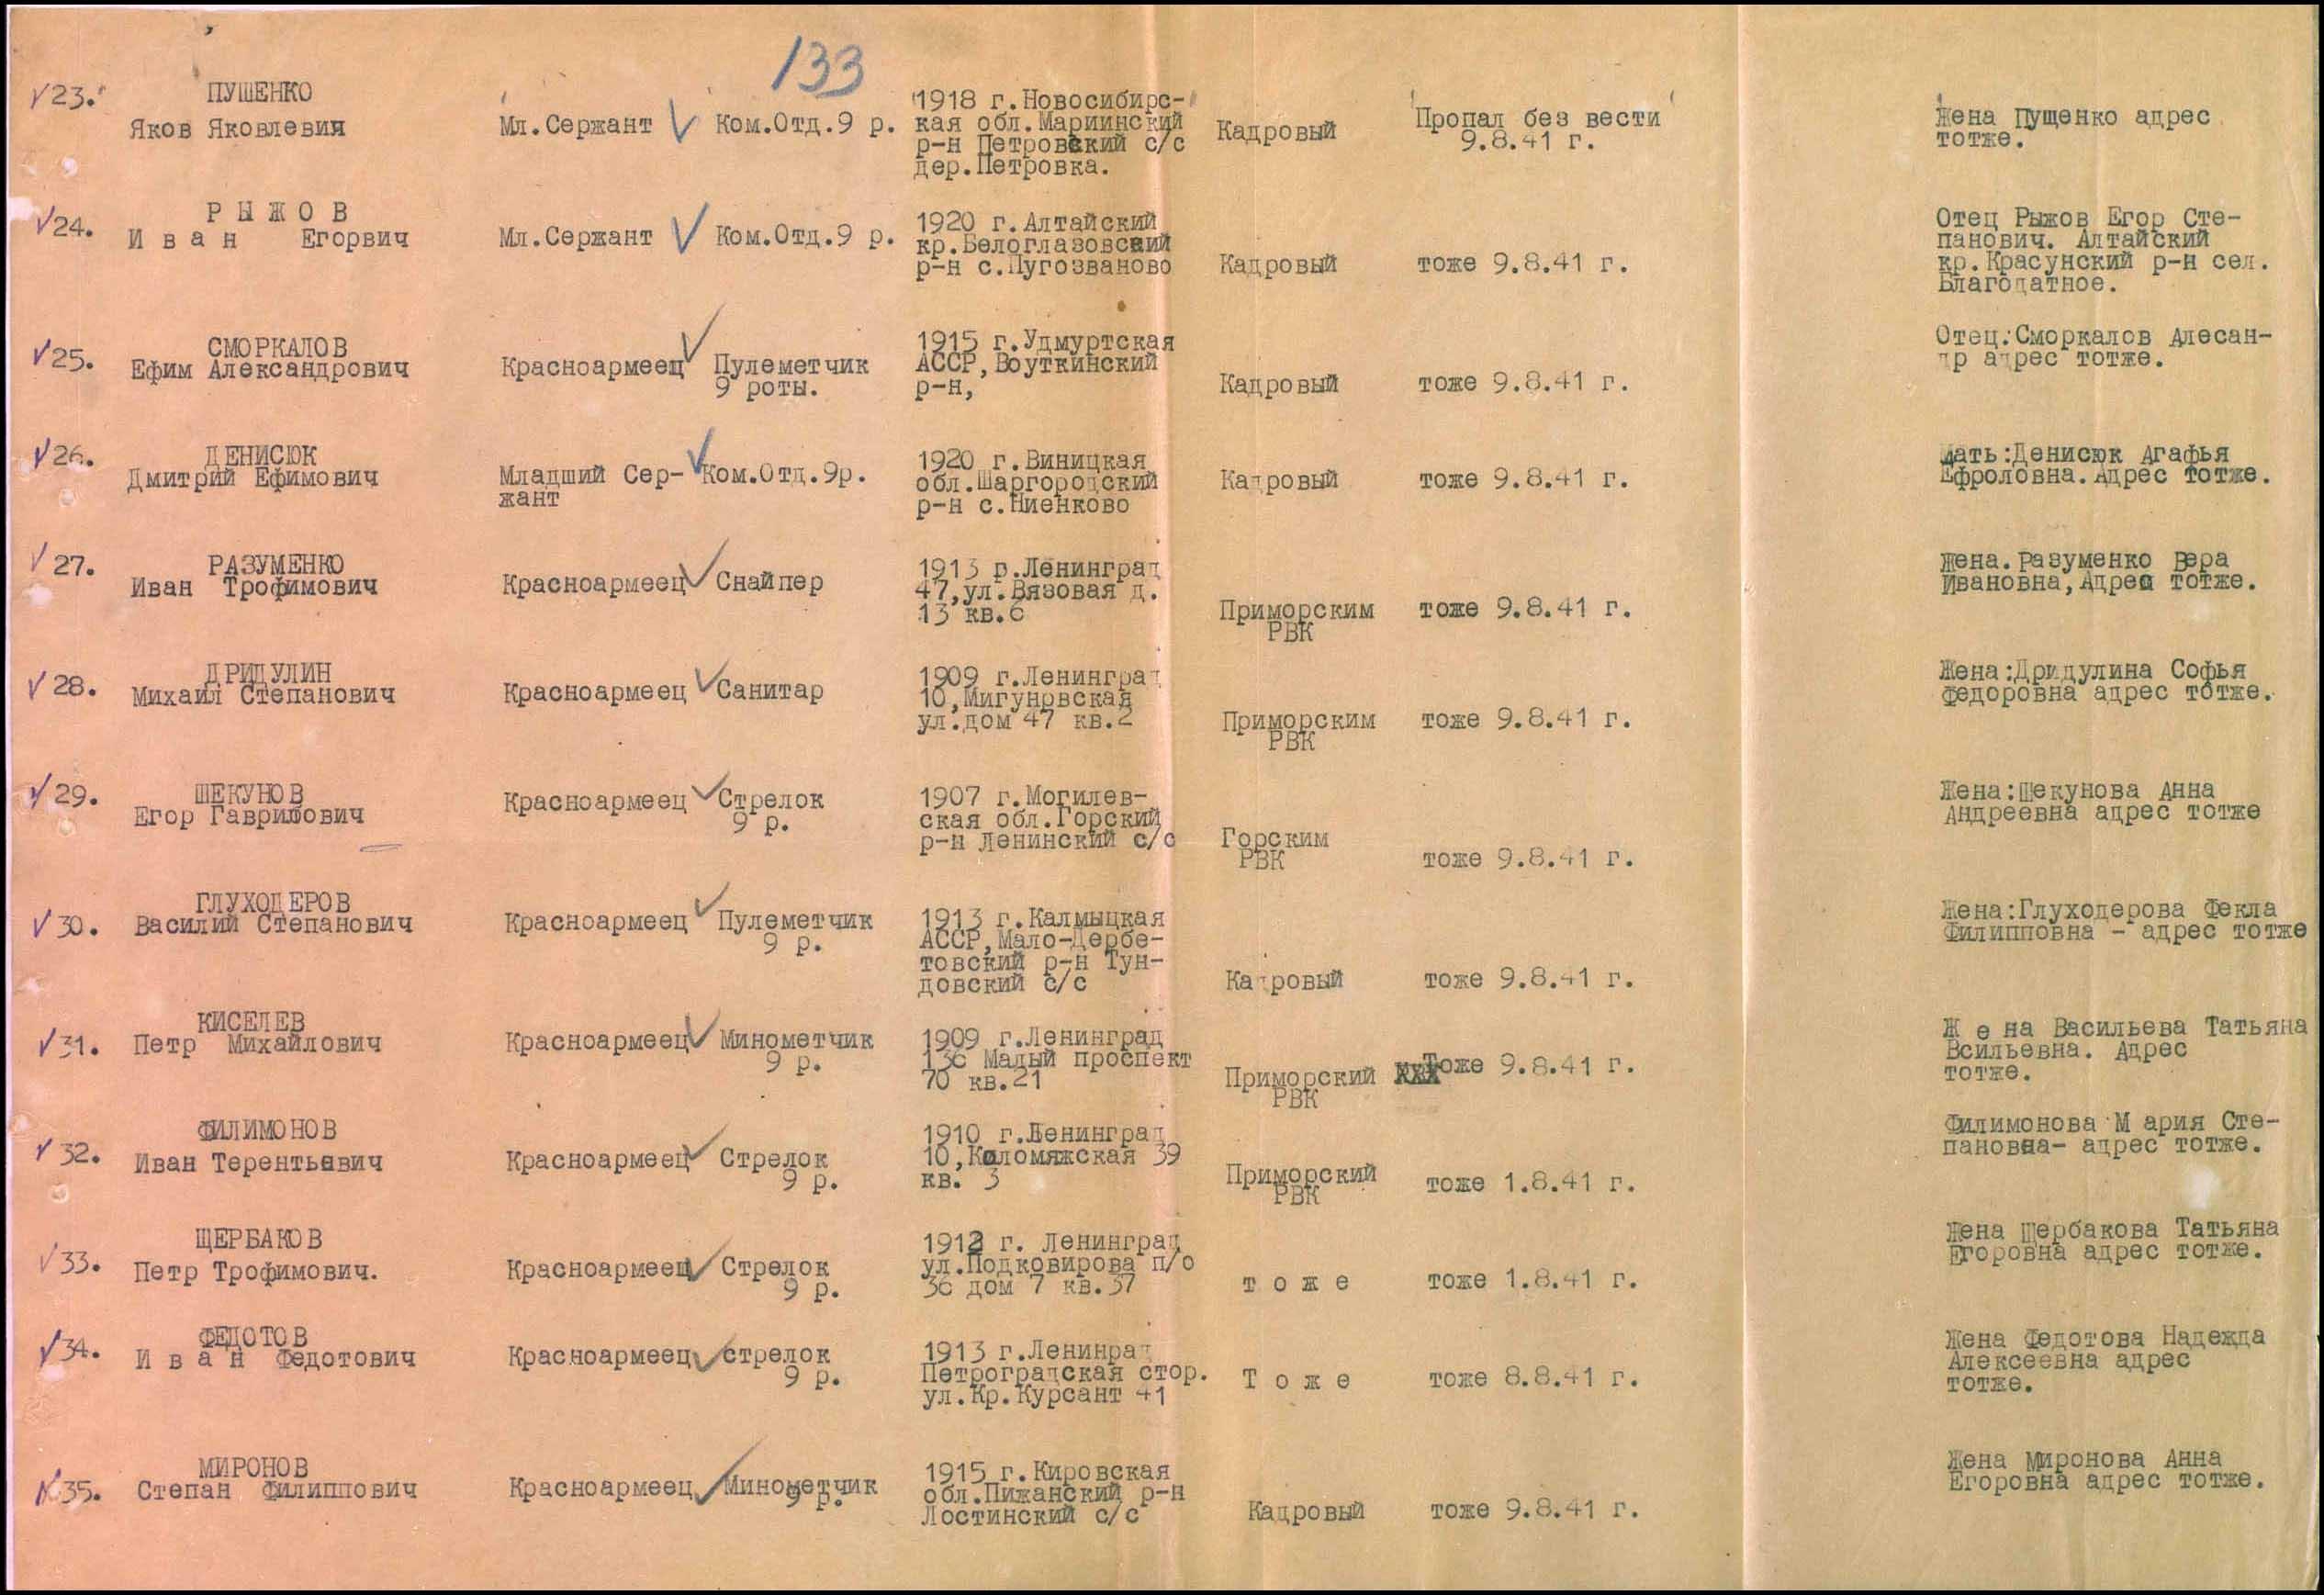 133
23.
ПУШЕНКО
Яков Яковлевия
Мл.Сержант
Ком.Отд.9 р.
1918 г.Новосибирс-
кая обл.Мариинский
р-н Петровский с/с
дер.Петровка.
Кадровый
Пропал без вести
9.8.41 г.
Жена Пущенко адрес
тотже.
24.
Р Ы Ж О В
И в а н Егорвич
Мл.Сержант
Ком.Отд.9 р.
1920 г.Алтайский
кр.Белоглазовский
р-н с.Пугозваново
Кадровый
тоже 9.8.41 г.
Отец Рыжов Егор Сте-
панович. Алтайский
кр.Красунский р-н сел.
Благодатное.
25.
СМОРКАЛОВ
Ефим Александрович
Красноармеец
Пулеметчик
9 роты.
1915 г.Удмуртская
АССР,Воуткинский
р-н,
Кадровый
тоже 9.8.41 г.
Отец:Сморкалов Алесан-
др адрес тотже.
26.
ДЕНИСЮК
Дмитрий Ефимович
Младший Сер-
жант
Ком.Отд.9р.
1920 г.Виницкая
обл.Шаргородский
р-н с.Ниенково
Кадровый
тоже 9.8.41 г.
Мать:Денисюк Агафья
Ефроловна.Адрес тотже.
27.
РАЗУМЕНКО
Иван Трофимович
Красноармеец
Снайпер
1913 р.Ленинград
47,ул.Вязовая д.
13 кв.6
Приморским
РВК
тоже 9.8.41 г.
Жена.Разуменко Вера
Ивановна,Адрес тотже.
28.
ДРИДУЛИН
Михаил Степанович
Красноармеец
Санитар
1909 г.Ленинград
10,Мигунрвская
ул.дом 47 кв.2
Приморским
РВК
тоже 9.8.41 г.
Жена:Дридулина Софья
Федоровна адрес тотже.
29.
ШЕКУНОВ
Егор Гаврилович
Красноармеец
Стрелок
9 р.
1907 г.Могилев-
ская обл.Горский
р-н Ленинский с/с
Горским
РВК
тоже 9.8.41 г.
Жена:Шекунова Анна
Андреевна адрес тотже
30.
ГЛУХОДЕРОВ
Василий Степанович
Красноармеец
Пулеметчик
9 р.
1913 г.Калмыцкая
АССР,Мало-Дербе-
товский р-н Тун-
довский с/с
Кадровый
тоже 9.8.41 г.
Жена:Глуходерова Фекла
Филипповна - адрес тотже
31.
КИСЕЛЕВ
Петр Михайлович
Красноармеец
Минометчик
9 р.
1909 г.Ленинград
136 Малый проспект
70 кв.21
Приморский
РВК
Тоже 9.8.41 г.
Ж е на Васильева Татьяна
Всильевна. Адрес
тотже.
32.
ФИЛИМОНОВ
Иван Терентьевич
Красноармеец
Стрелок
9 р.
1910 г.Ленинград
10,Коломяжская 39
кв. 3
Приморский
РВК
тоже 1.8.41 г.
Филимонова М ария Сте-
пановна- адрес тотже.
33.
ЩЕРБАКОВ
Петр Трофимович.
Красноармеец
Стрелок
9 р.
1912 г. Ленинград
ул.Подковирова п/о
36 дом 7 кв.37
т о ж е
тоже 1.8.41 г.
Жена Щербакова Татьяна
Егоровна адрес тотже.
34.
ФЕДОТОВ
И в а н Федотович
Красноармеец
стрелок
9 р.
1913 г.Ленинрад
Петроградская стор.
ул.Кр.Курсант 41
Т о ж е
тоже 8.8.41 г.
Жена Федотова Надежда
Алексеевна адрес
тотже.
35.
МИРОНОВ
Степан Филиппович
Красноармеец
Минометчик
9 р.
1915 г.Кировская
обл.Пижанский р-н
Лостинский с/с
Кадровый
тоже 9.8.41 г.
Жена Миронова Анна
Егоровна адрес тотже.